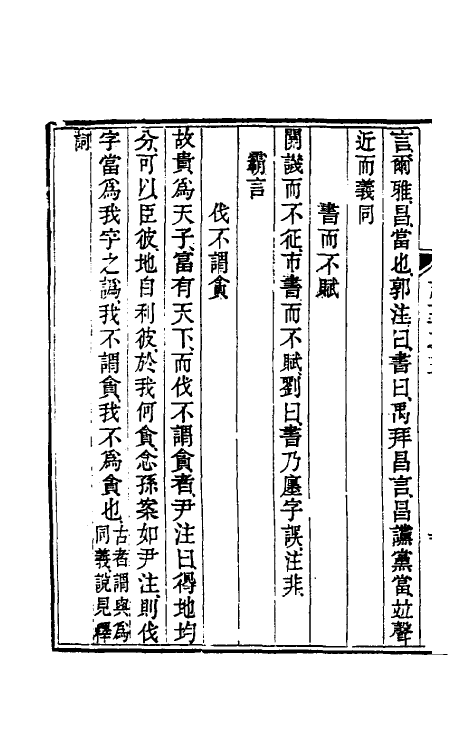 言爾雅昌當也郭注曰書曰禹拜昌言昌讜黨當竝聲
近而義同
書而不賦
關譏而不征市書而不賦劉曰書乃廛字誤注非
霸言
伐不謂貪
故貴爲天子富有天下而伐不謂貪者尹注曰得地均
分可以臣彼地自利彼於我何貪念孫案如尹注則伐
字當爲我字之譌我不謂貪我不爲貪也古者謂與爲同義說見釋
詞